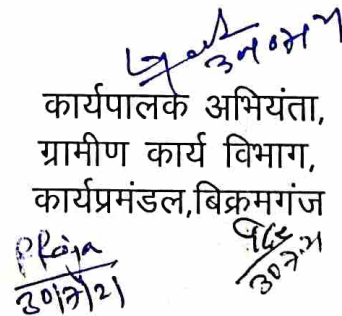 30.07.21
कार्यपालक अभियंता,
ग्रामीण कार्य विभाग,
कार्यप्रमंडल,बिक्रमगंज
30/7/21
30.7.21